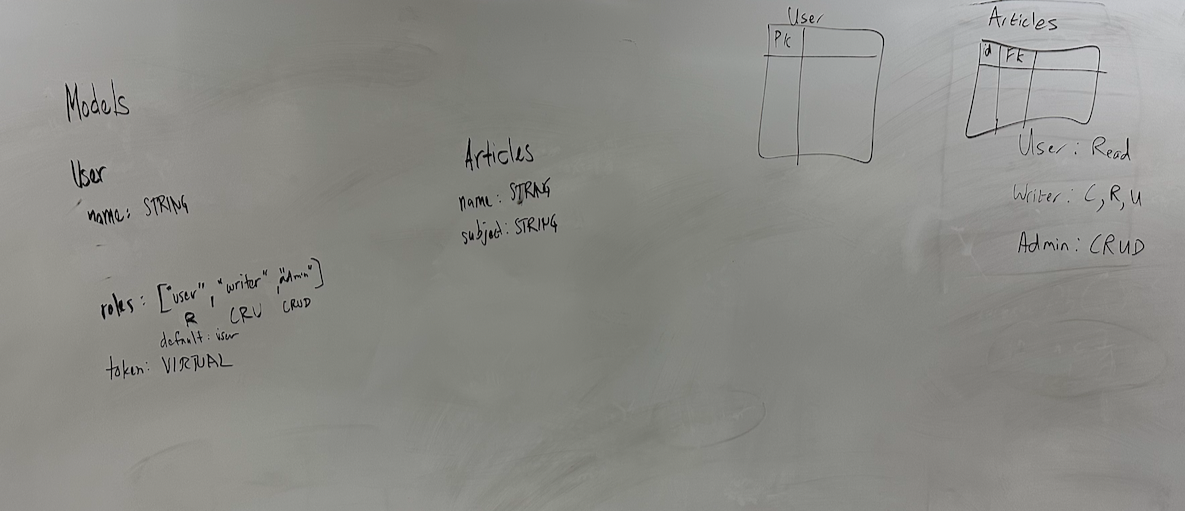 Models
User
name: STRING
roles: ["user", "writer", "admin"]
R CRU CRUD
default: user
token: VIRTUAL
Articles
name: STRING
subject: STRING
User
PK
Articles
id FK
User: Read
Writer: C, R, U
Admin: CRUD